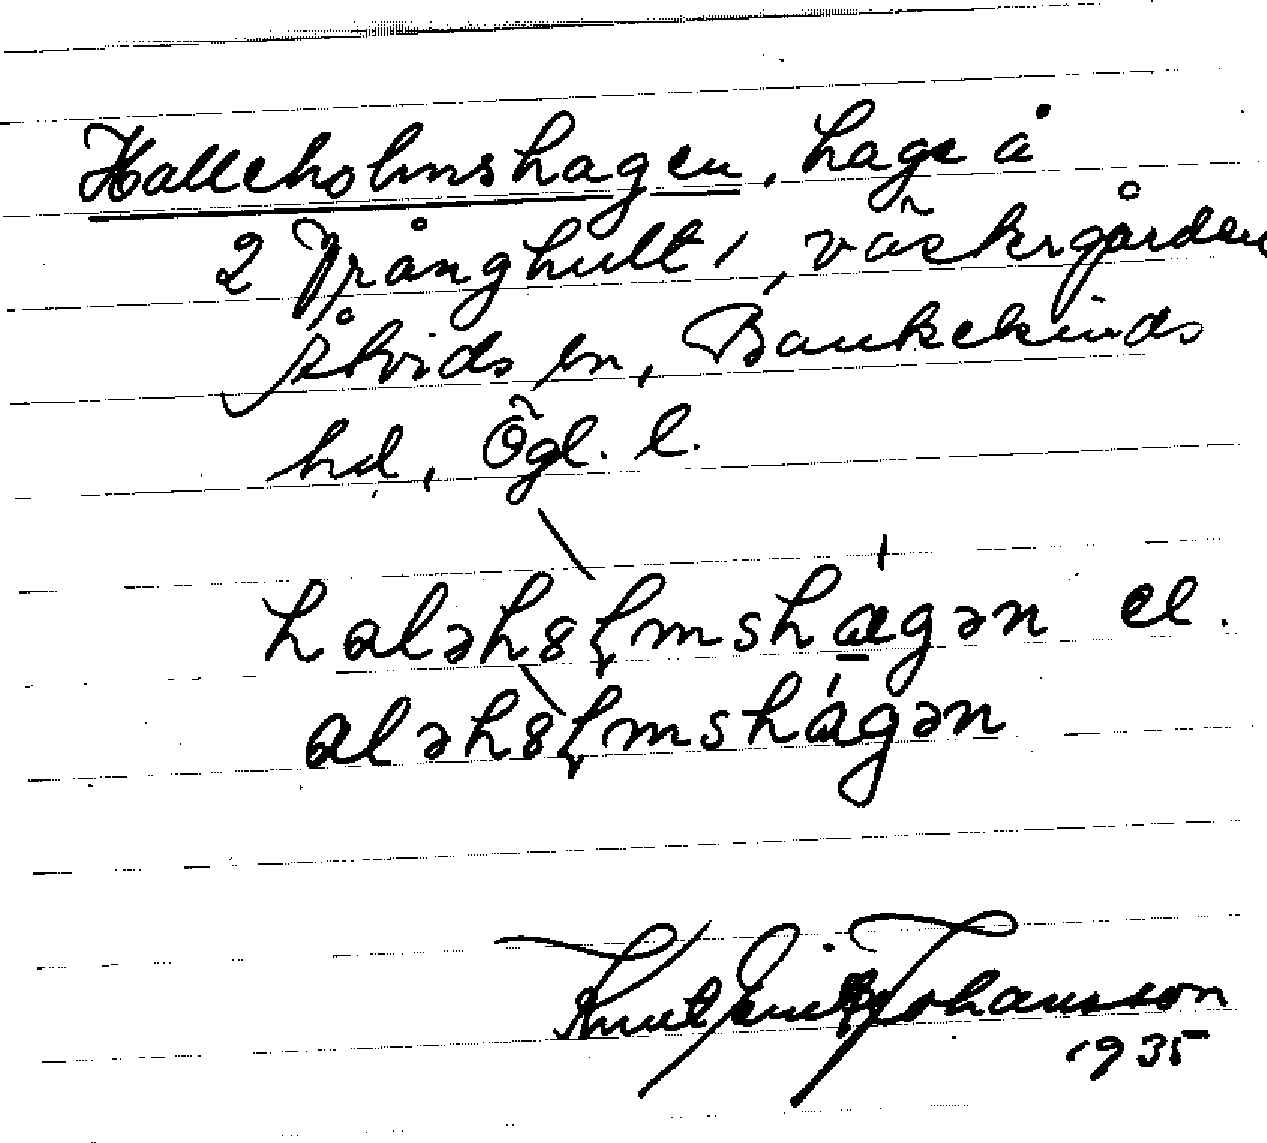 Halleholmshagen, hage å
2 Trånghult 1, västergården
Åtvids sn, Bankekinds
hd, Ögl. l.
haləhoḷmshagən el.
aləhoḷmshágən
Knut Erik Johansson
1935